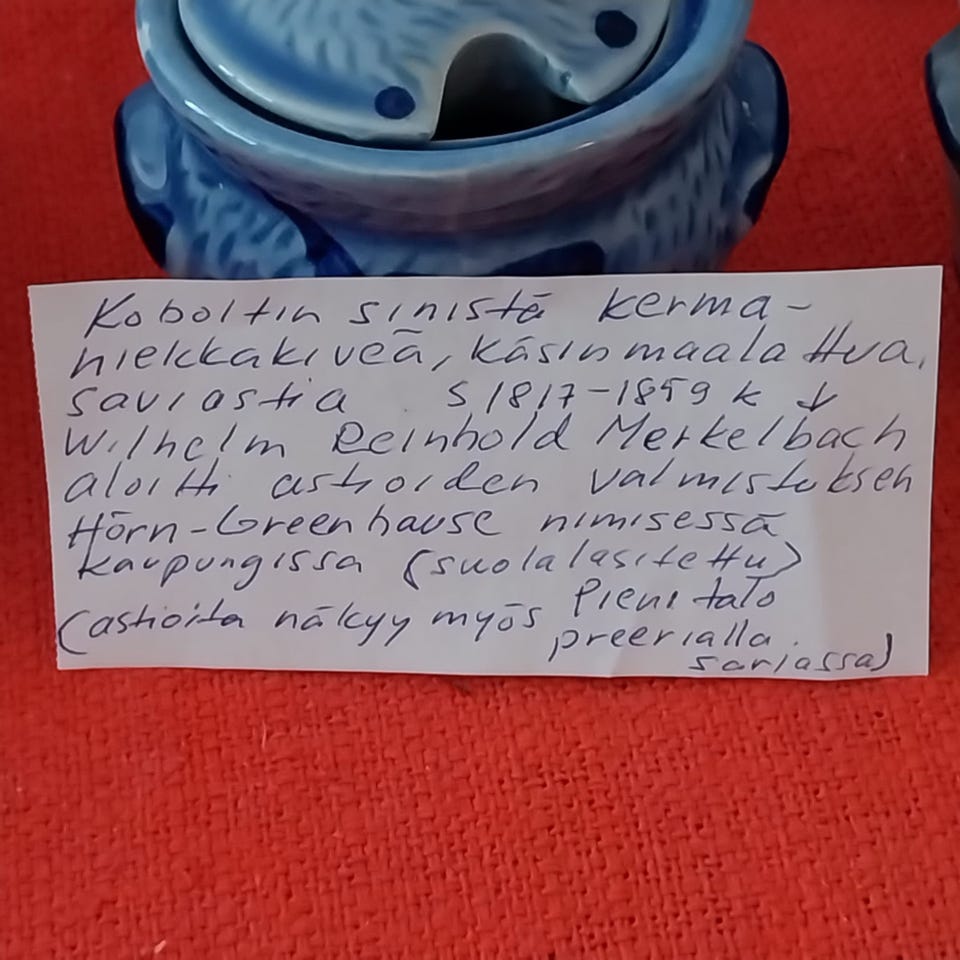 Koboltin sinistä kerma-
hiekkakiveä, Käsinmaalattua,
saviastia S 1817-1859 k ↓
Wilhelm Reinhold Merkelbach
aloitti astioiden valmistuksen
Hörn-Greenhause nimisessä
kaupungissa (suolalasitettu)
(astioita näkyy myös Pieni talo
preerialla.
sarjassa)